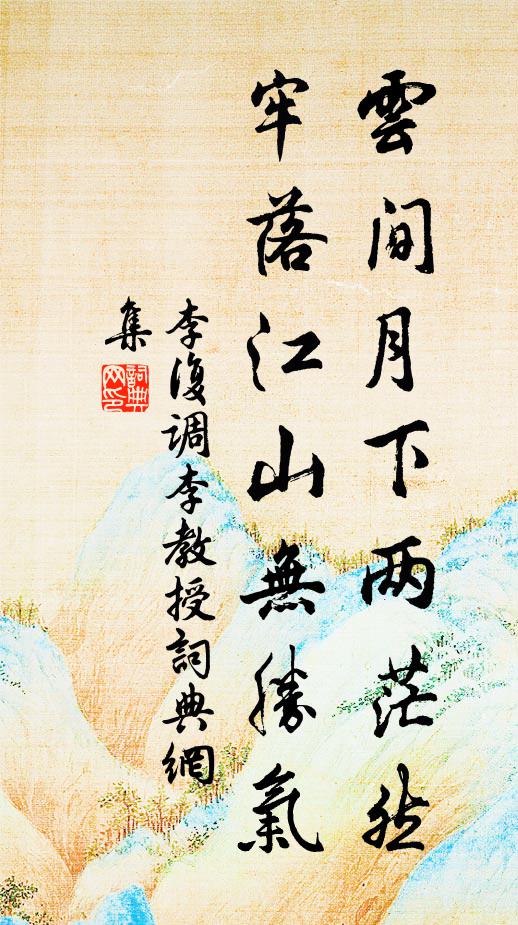 雲間月下两茫然
牢落江山無勝氣
李復调李教授詞典網
集
詞典網印